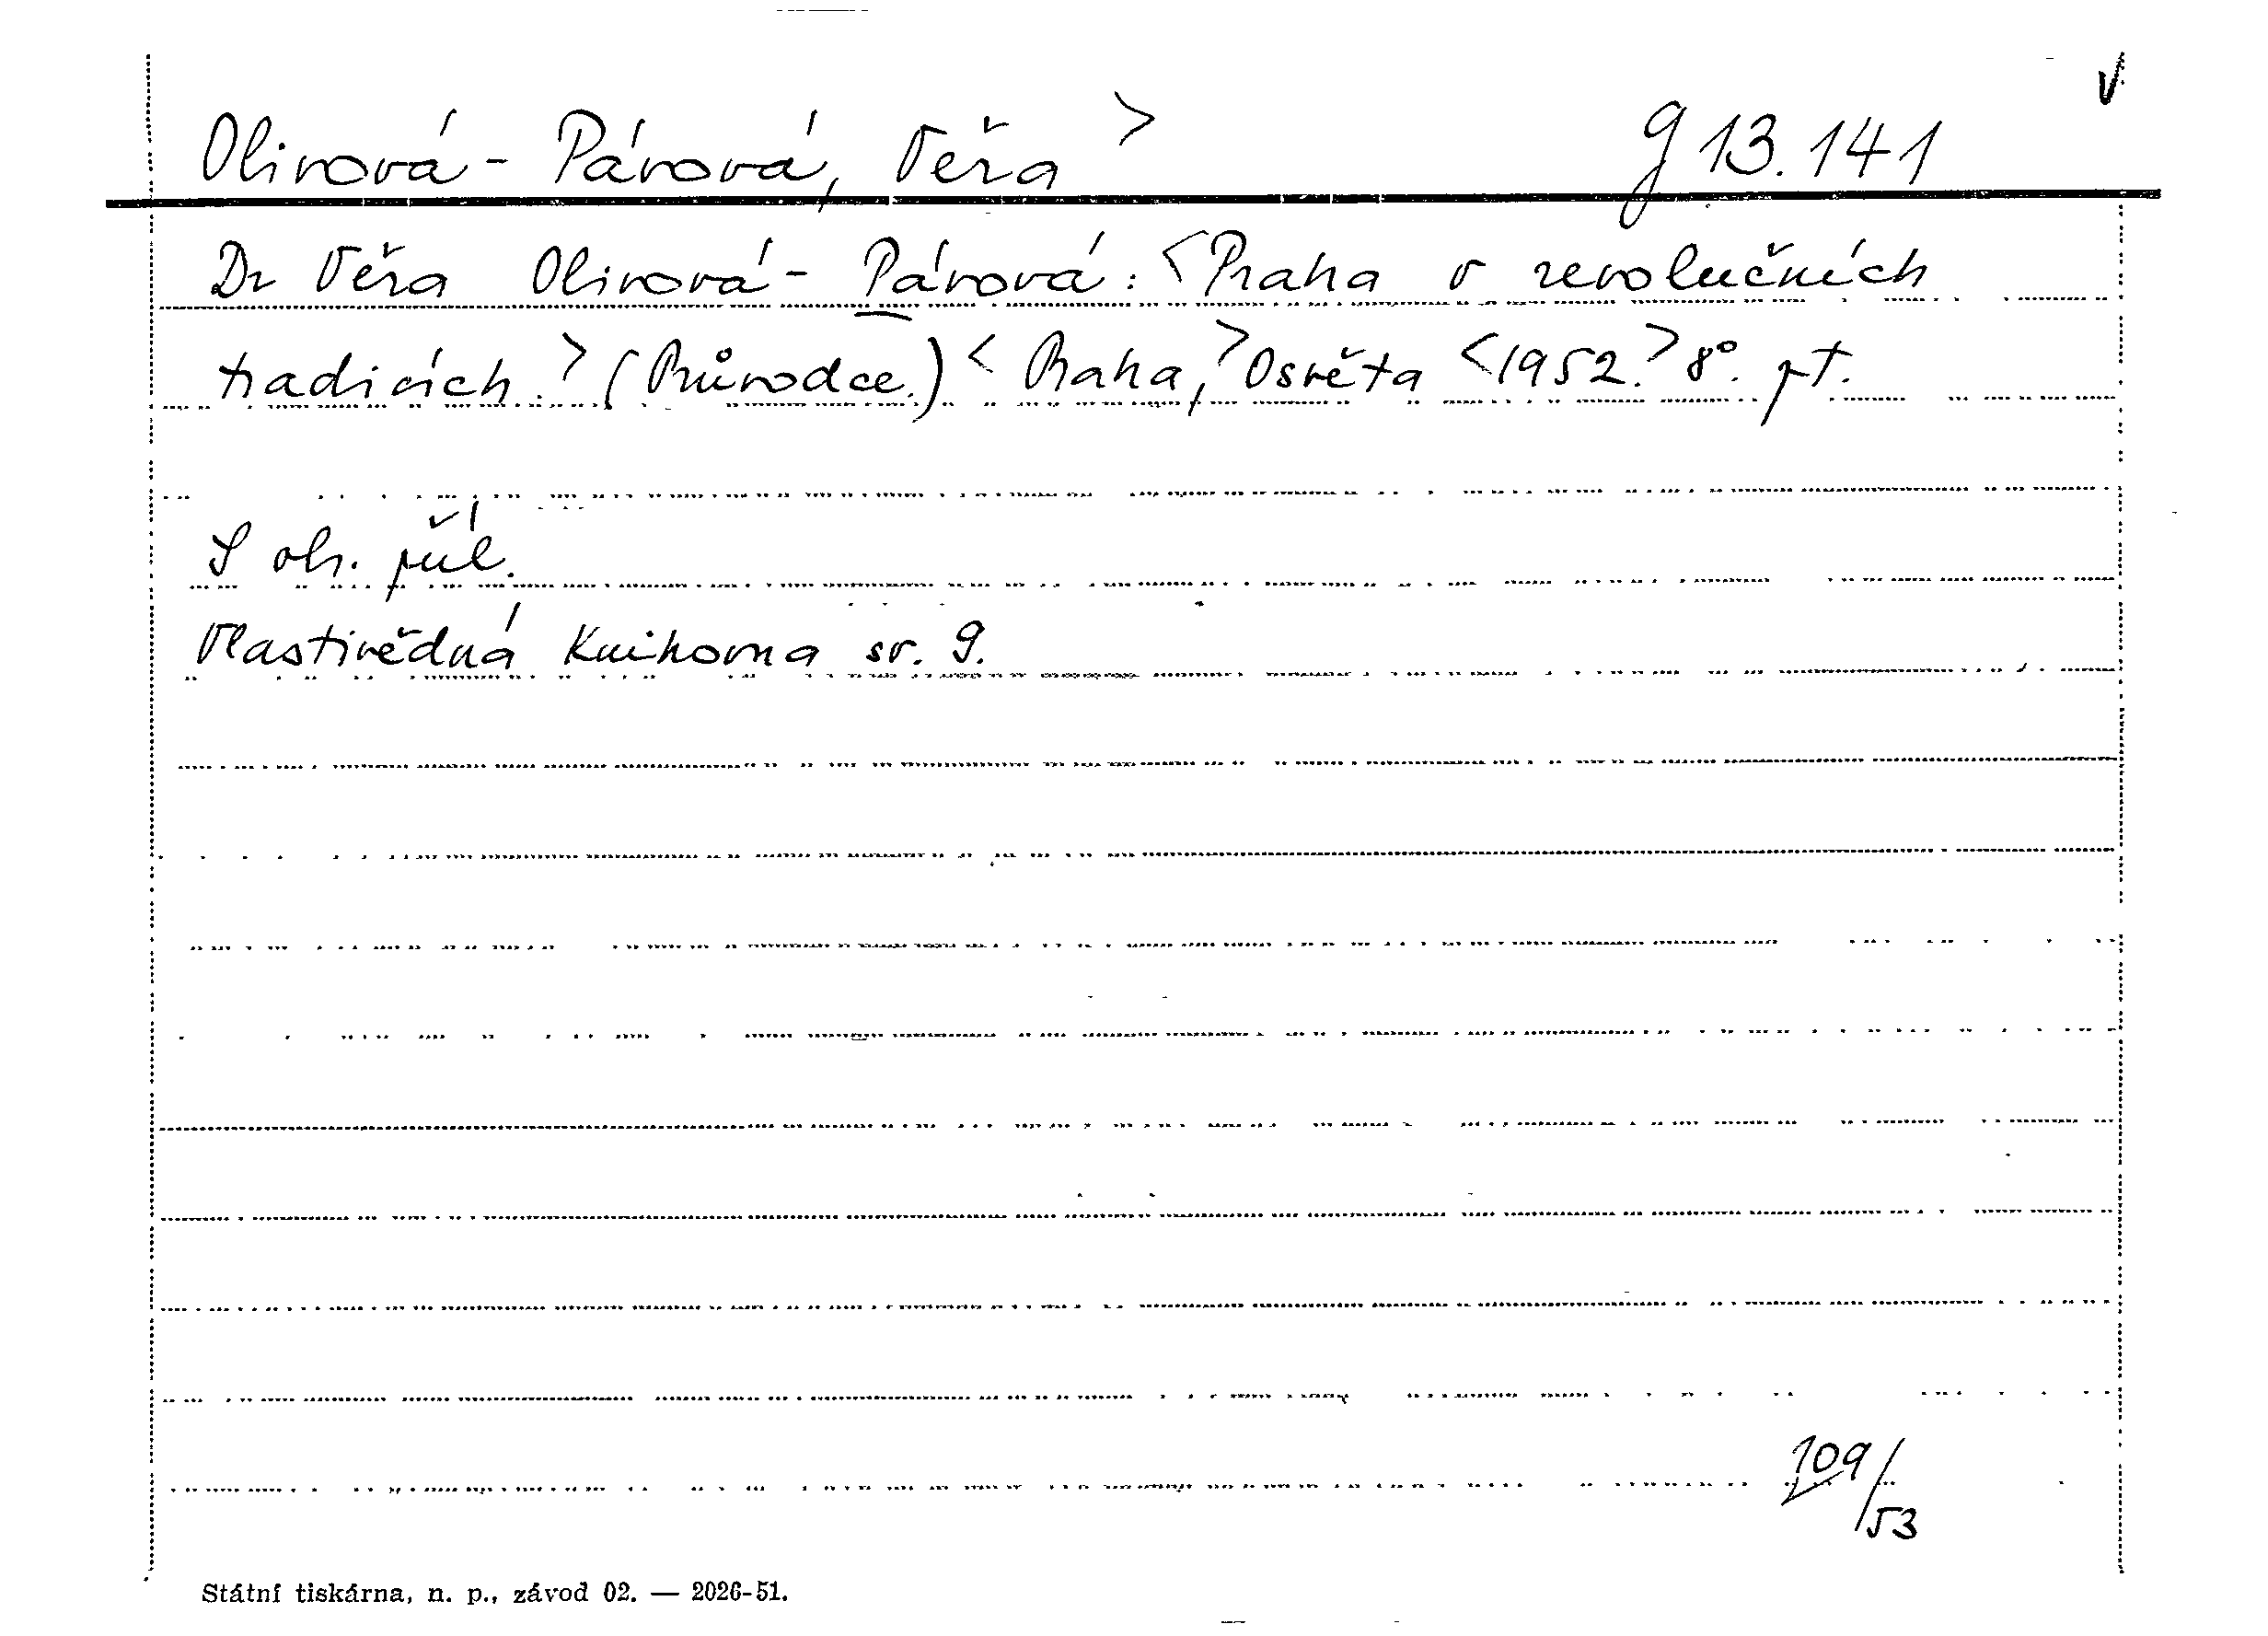 Olivová-Párová, Věra > g 13.141
Dr Věra Olivová-Párová: <Praha v revolučních
tradicích.> (Průvodce.) <Praha,> Osvěta <1952.> 8°. pt.
S obr. příl.
Vlastivědná Knihovna sv. 9.
109/53
Státní tiskárna, n. p., závod 02. — 2026-51.